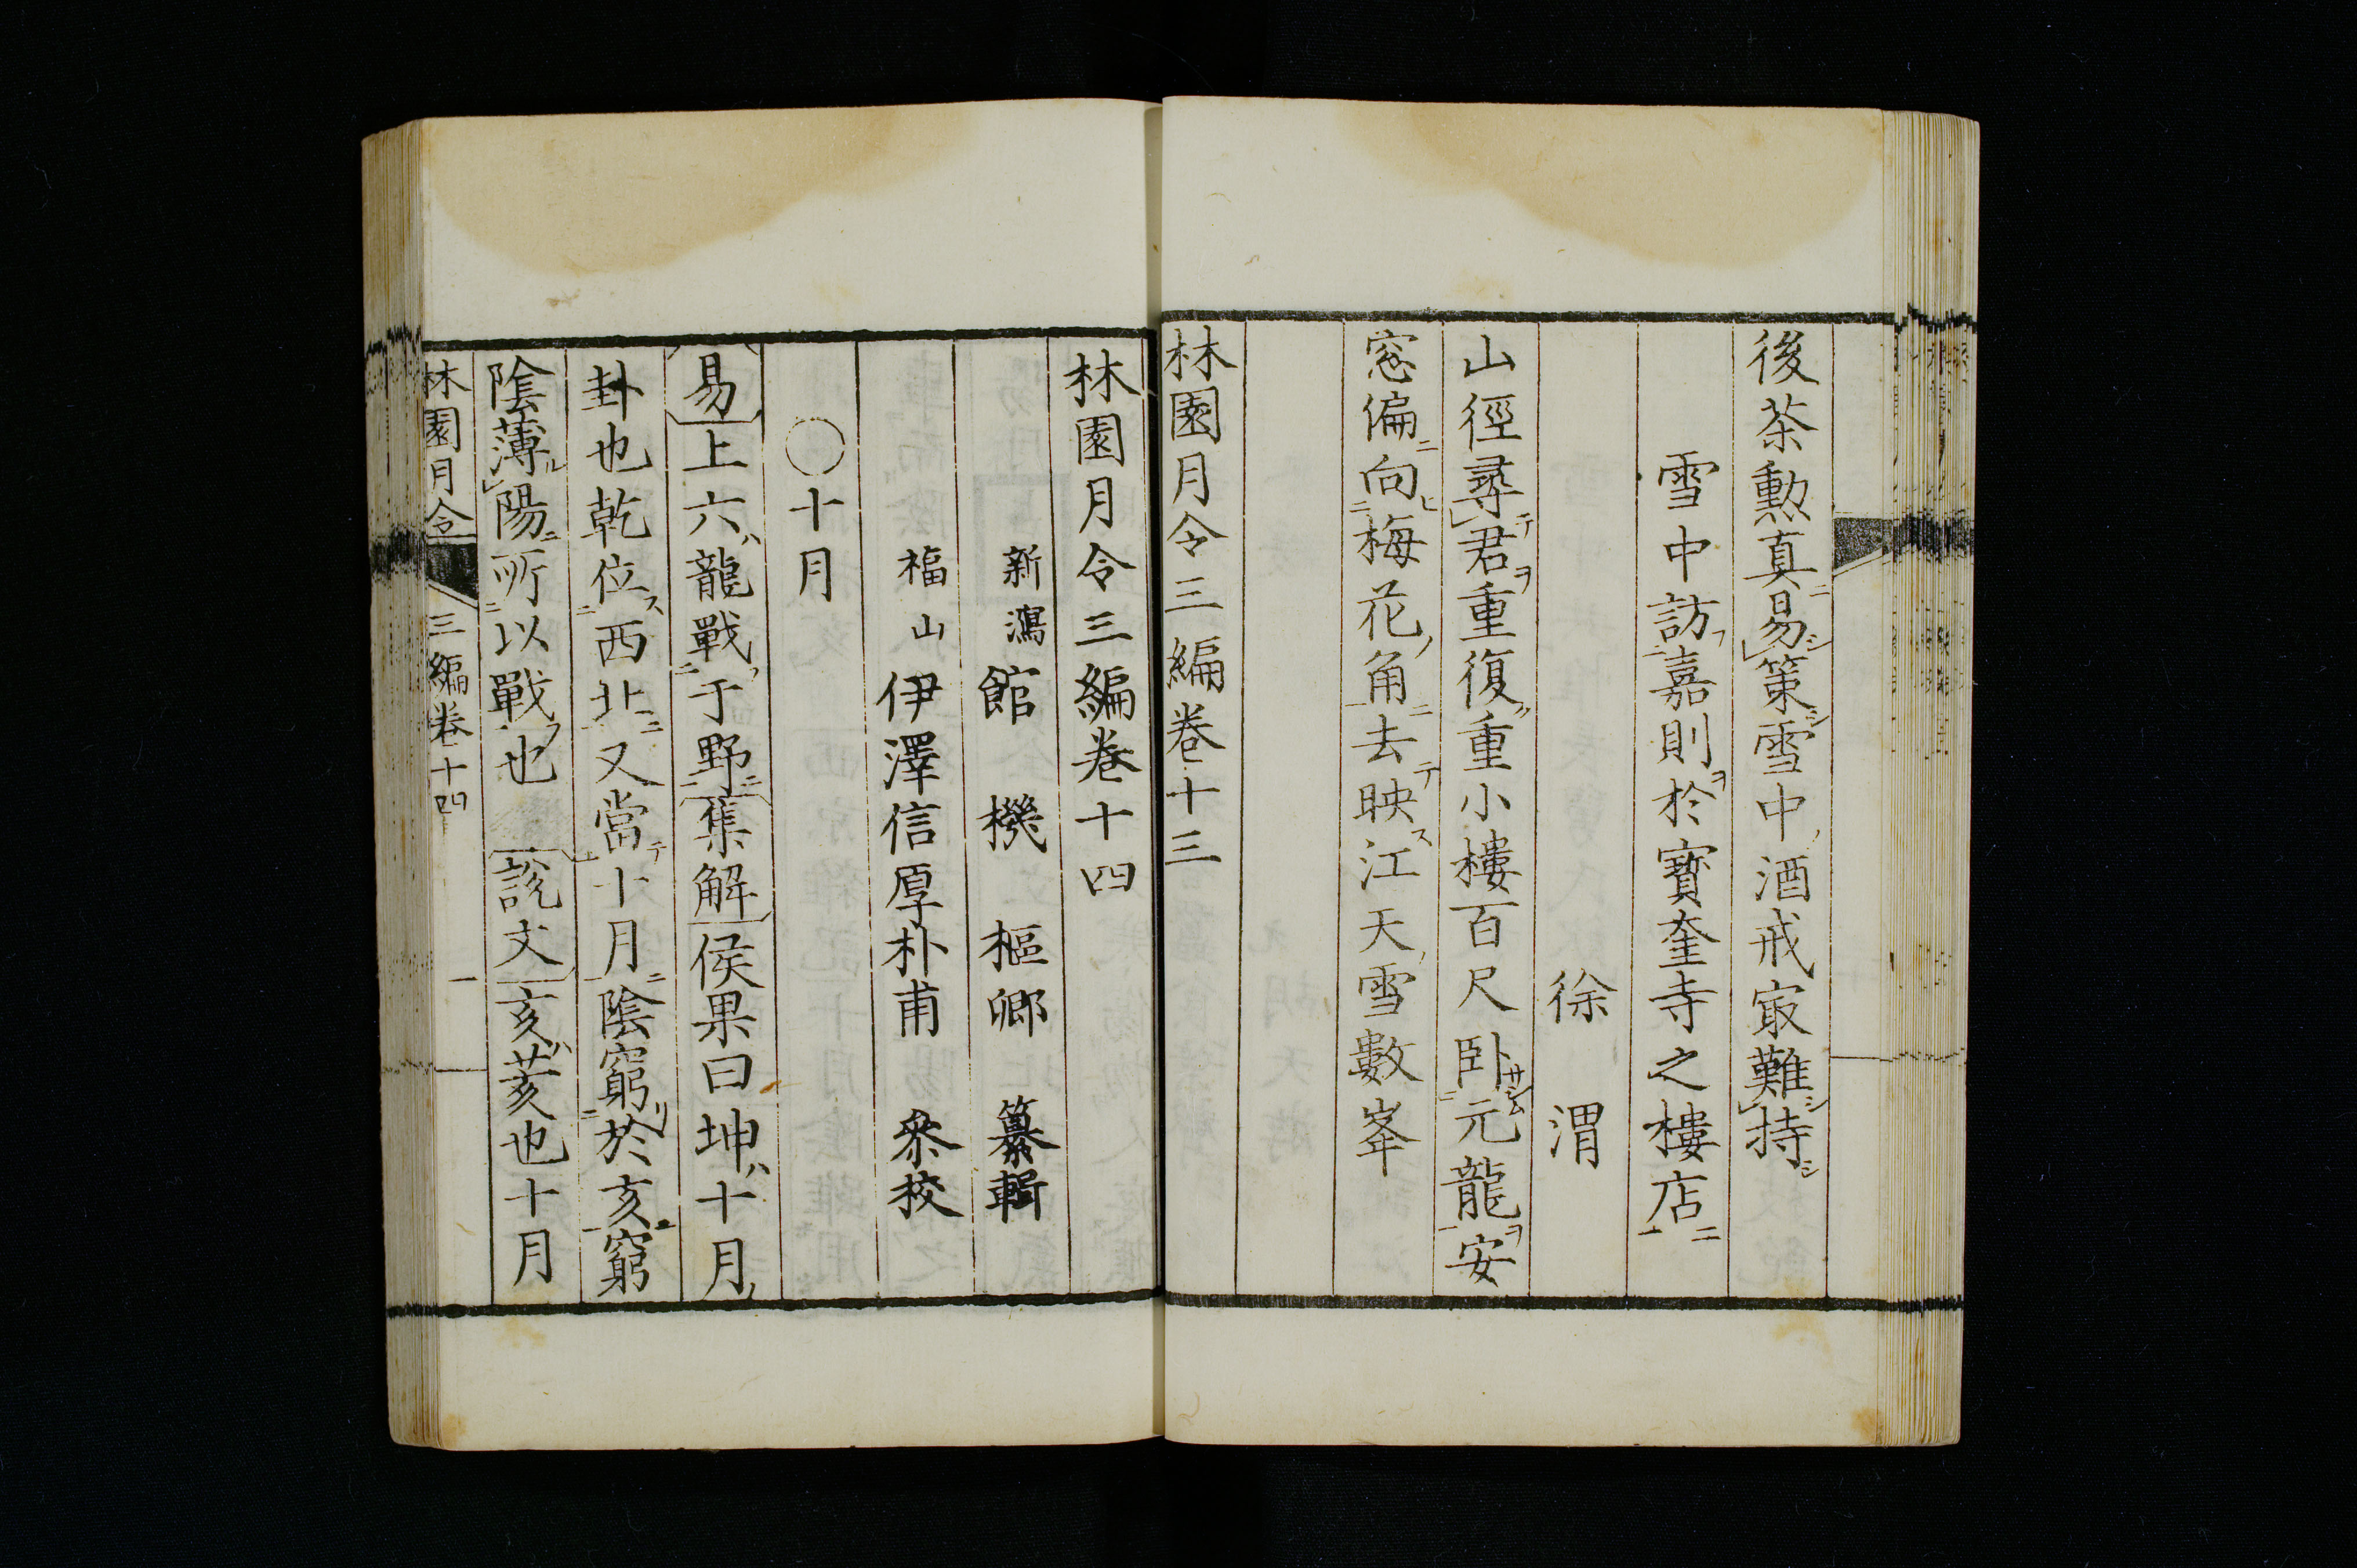 後茶勲真易策雪中酒戒㝡難持
雪中訪嘉則於寳奎寺之樓店
徐渭
山徑尋君重復重小樓百尺卧元龍安
窓偏向梅花角去映江天雪數峯
林園月令三編巻十三
林園月令三編巻十四
新潟 館 機 樞卿 纂輯
福山 伊澤信厚朴甫 叅校
○十月
易上六龍戰于野集解侯果曰坤十月
卦也乾位西北又當十月陰窮於亥窮
陰薄陽所以戰也 說文亥荄也十月
林園月令 三編巻十四 一